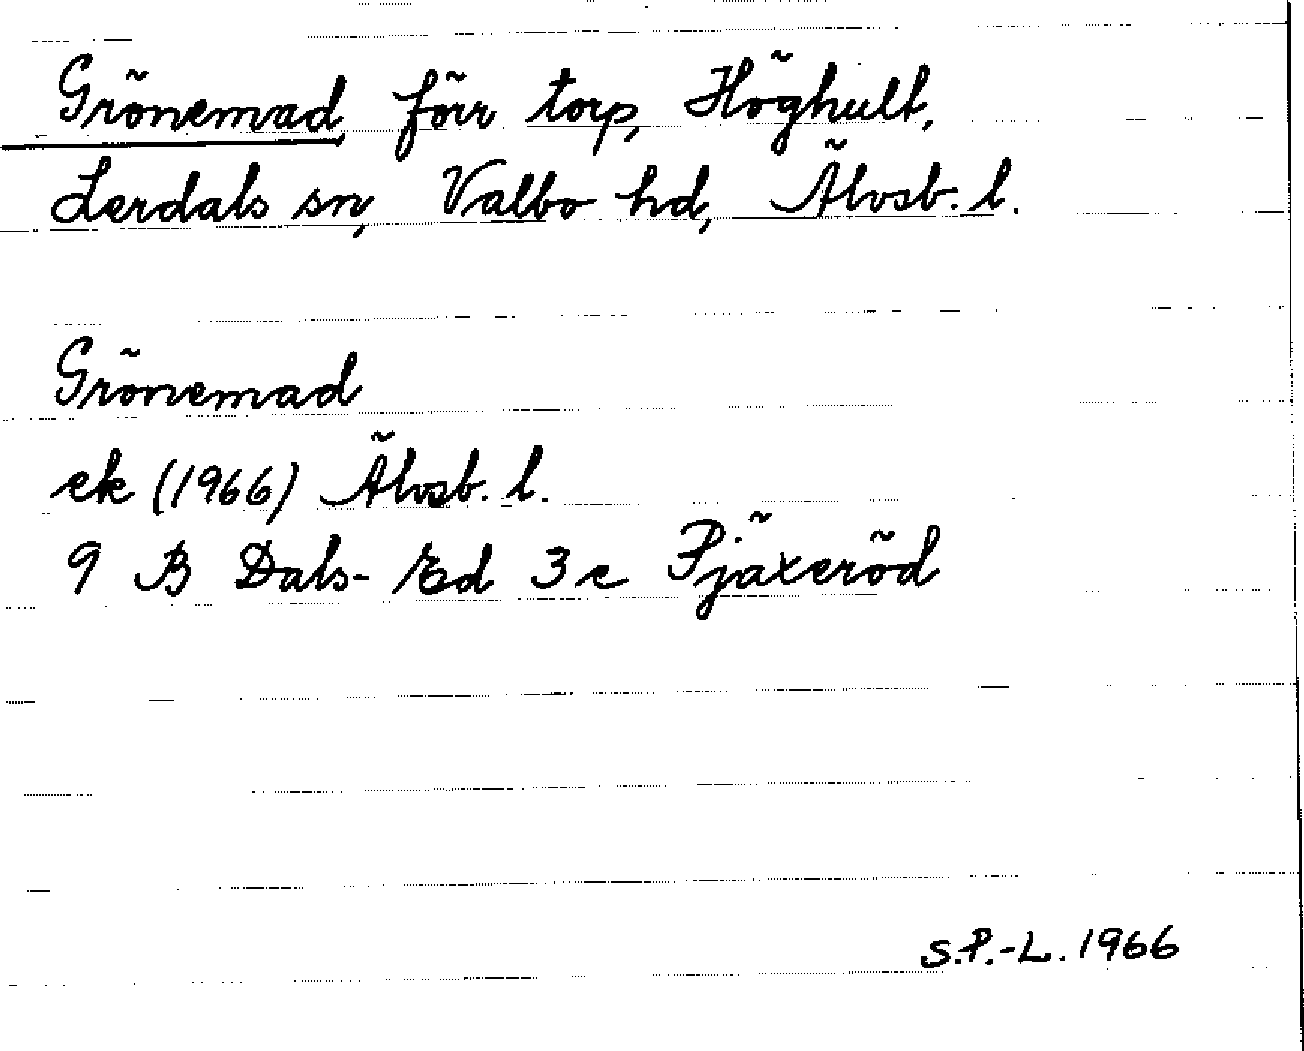 Grönemad, förr torp, Höghult,
Lerdals sn, Valbo hd, Älvsb. l.
Grönemad
ek (1966) Älvsb. l.
9 B Dals-Ed 3 c Pjäxeröd
S.P.-L. 1966